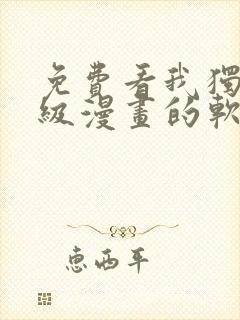 免費看我獨
級漫畫的軟
惠西平